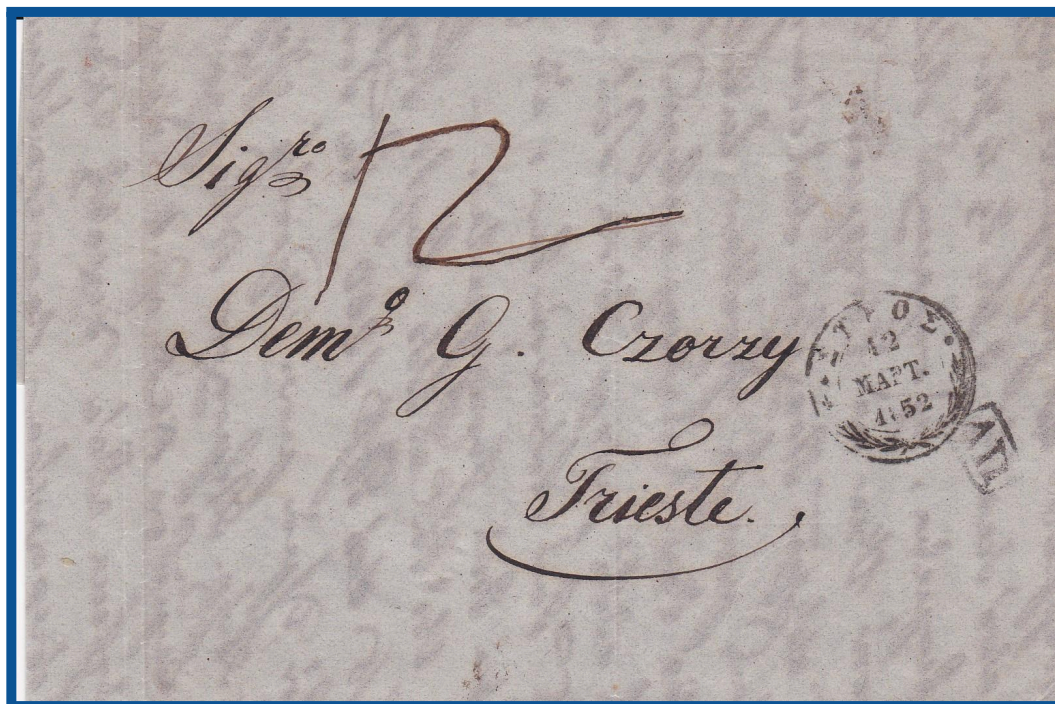 Sigro
12
Demo G. Czorzy
Trieste.
12
ΜΑΡΤ.
1852